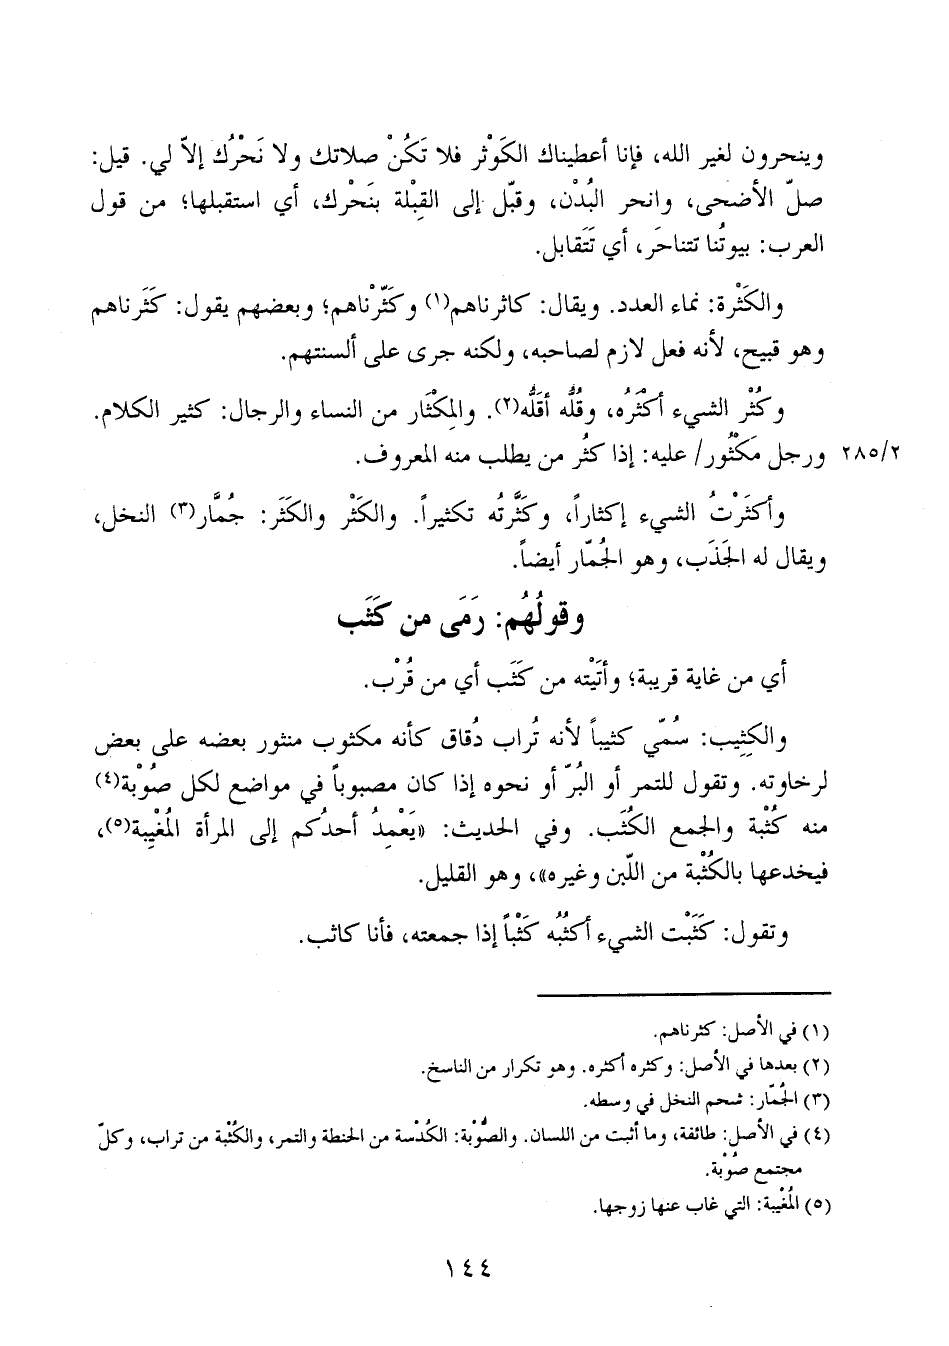 وينحرون لغير الله، فإنا أعطيناك الكَوْثر فلا تَكُنْ صلاتك ولا نَحْرُك إلاّ لي. قيل:
صلّ الأضحى، وانحر البُدْن، وقبّل إلى القِبْلة بنَحْرك، أي استقبلها؛ من قول
العرب: بيوتُنا تتناحَر، أي تَتَقابل.
والكَثْرة: نماء العدد. ويقال: كاثرناهم(١) وكَثّرْناهم؛ وبعضهم يقول: كَثَرناهم
وهو قبيح، لأنه فعل لازم لصاحبه، ولكنه جرى على ألسنتهم.
وكُثْر الشيء أكثَرُه، وقُلُّه أقَلُّه(٢). والمِكْثَار من النساء والرجال: كثير الكلام.
٢٨٥/٢ ورجل مَكْثُور/ عليه: إذا كثُر من يطلب منه المعروف.
وأكثَرْتُ الشيء إكثاراً، وكَثَّرتُه تكثيراً. والكَثْر والكَثَر: جُمَّار(٣) النخل،
ويقال له الجَذَب، وهو الجُمّار أيضاً.
وقولُهُم: رَمَى من كَثَب
أي من غاية قريبة؛ وأتَيْته من كَثَب أي من قُرْب.
والكثِيب: سُمّي كثيباً لأنه تُراب دُقاق كأنه مكثوب منثور بعضه على بعض
لرخاوته. وتقول للتمر أو البُرّ أو نحوه إذا كان مصبوباً في مواضع لكل صُوْبة(٤)
منه كُثْبة والجمع الكُثَب. وفي الحديث: «يَعْمِدُ أحدُكم إلى المرأة المُغْيِبة(٥)،
فيخدعها بالكُثْبة من اللّبن وغيره»، وهو القليل.
وتقول: كَثَبْت الشيء أكثُبُه كَثْباً إذا جمعته، فأنا كاثب.
(١) في الأصل: كثرناهم.
(٢) بعدها في الأصل: وكثره أكثره. وهو تكرار من الناسخ.
(٣) الجُمّار: شحم النخل في وسطه.
(٤) في الأصل: طائفة، وما أثبت من اللسان. والصُّوْبة: الكُدْسة من الحنطة والتمر، والكُثْبة من تراب، وكلّ
مجتمع صُوْبة.
(٥) المُغْيبة: التي غاب عنها زوجها.
١٤٤